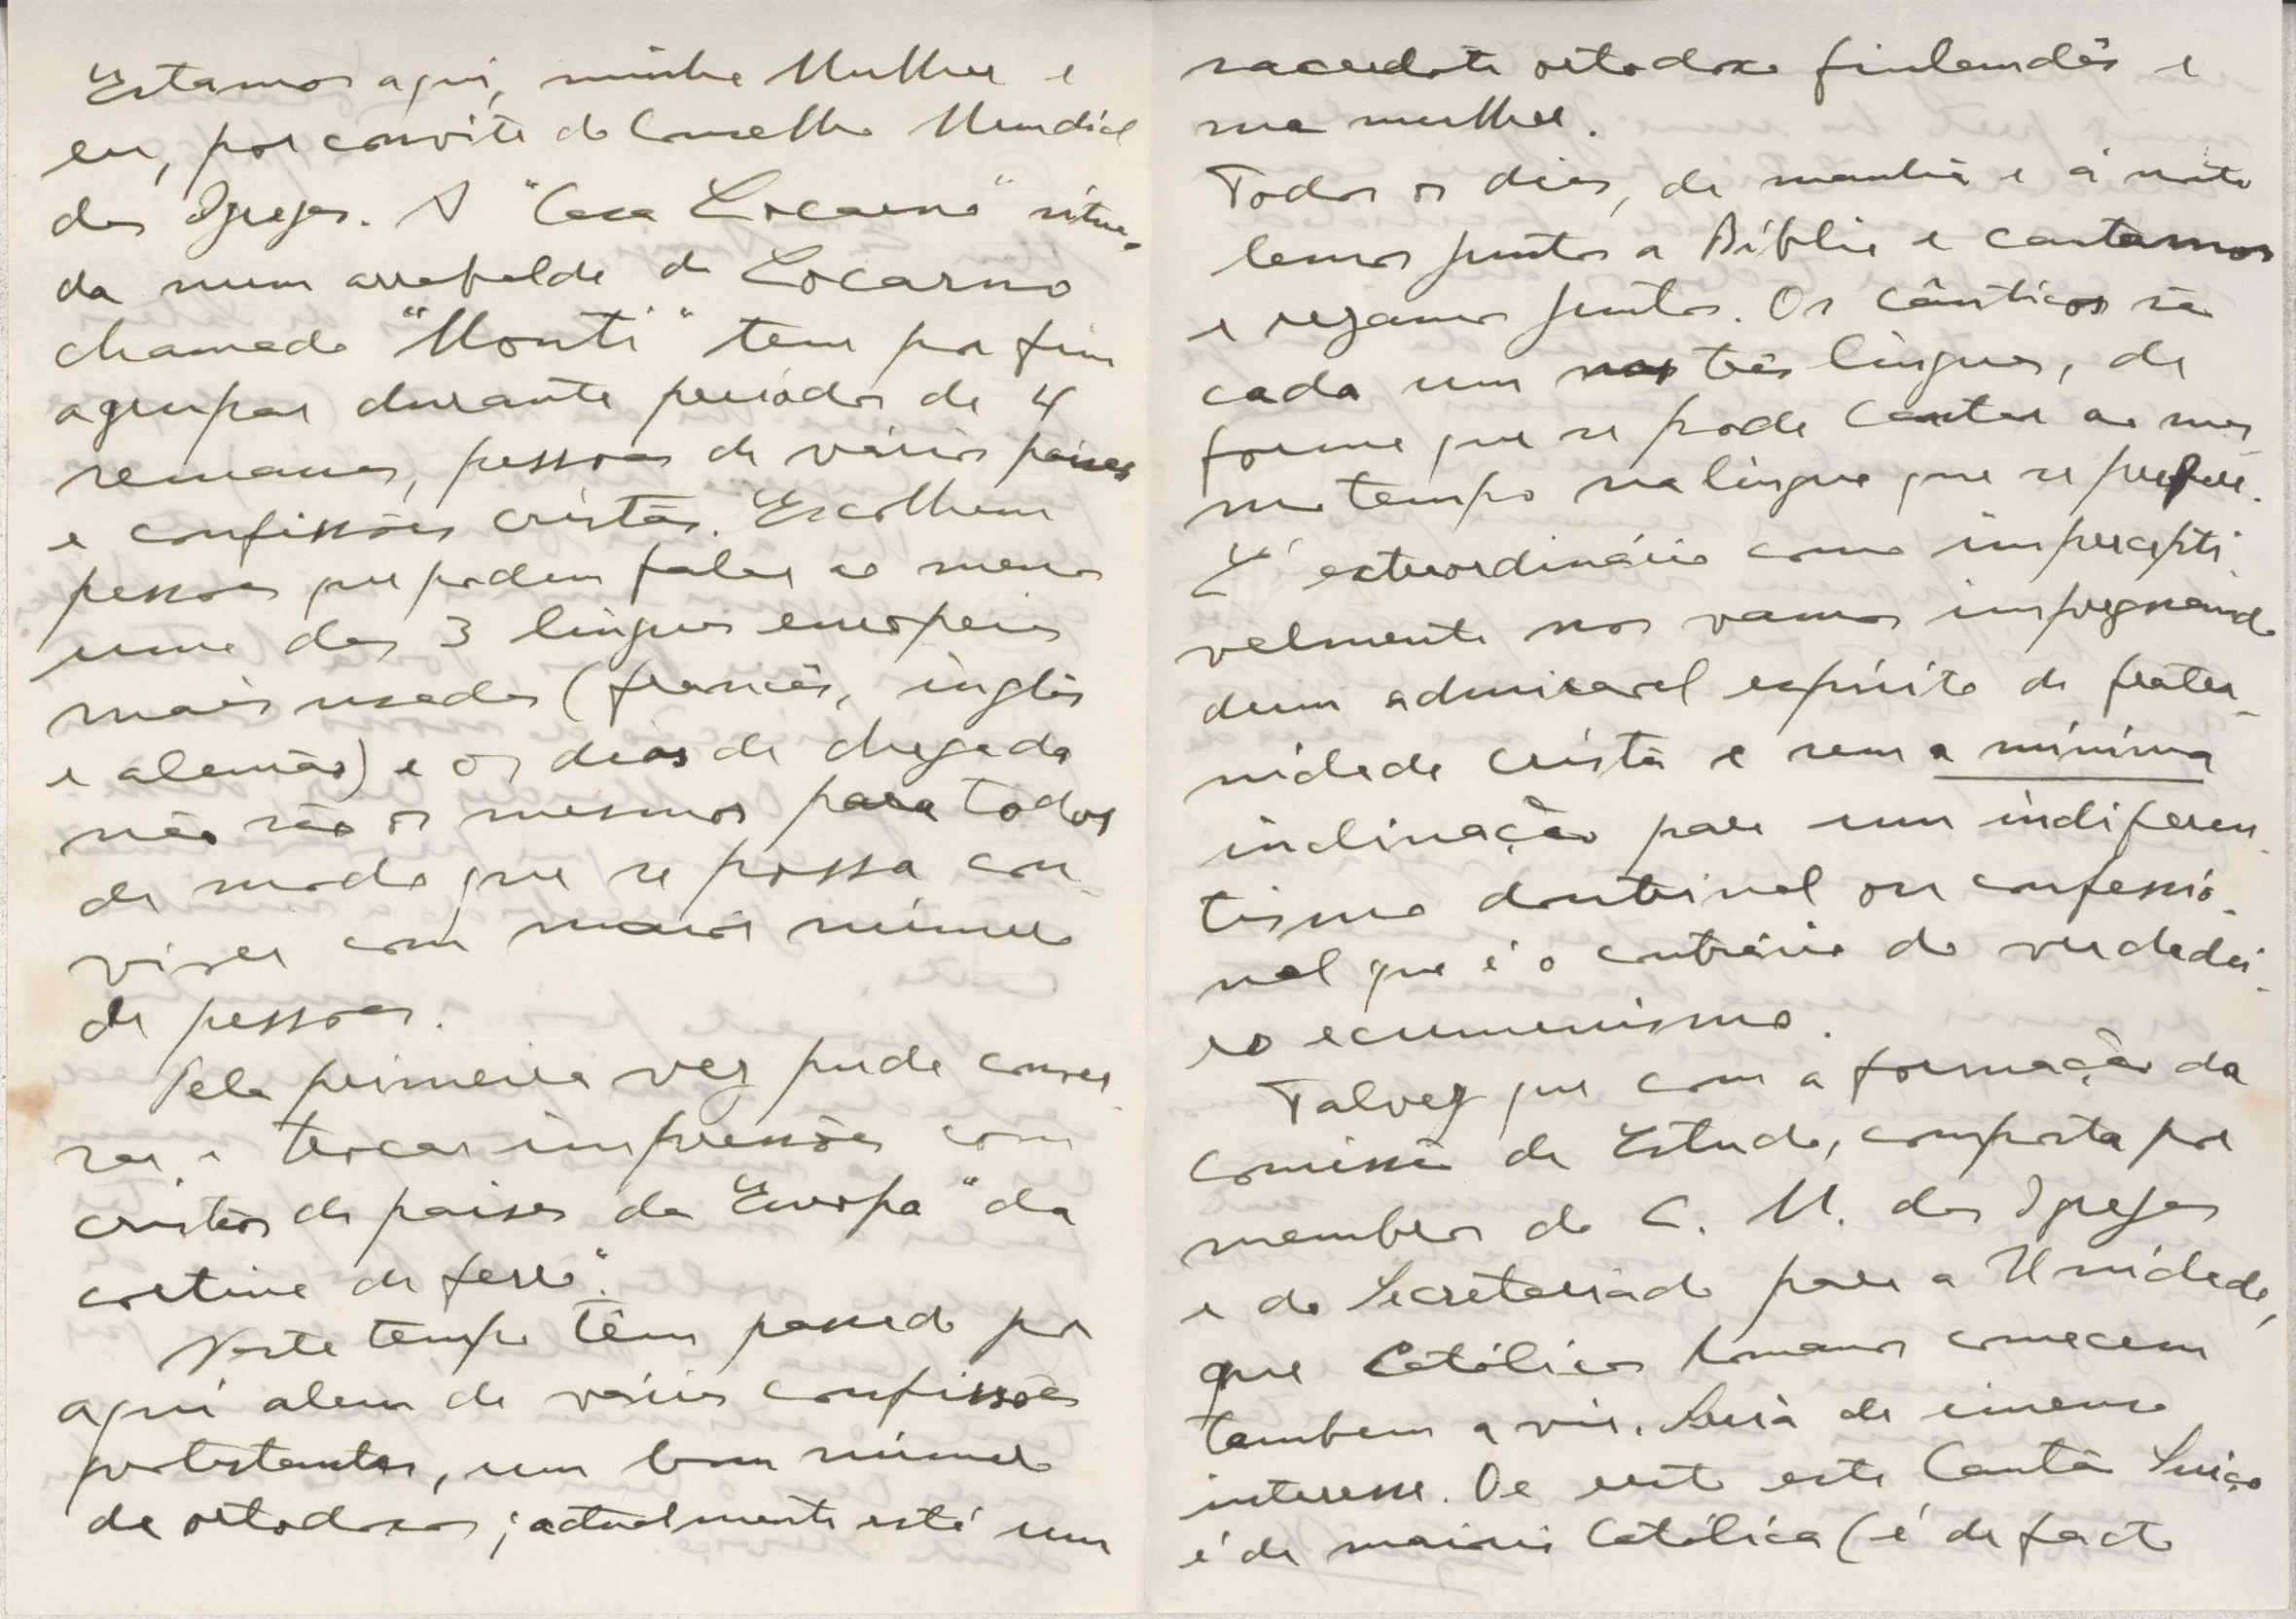 Estamos aqui, minha Mulher e
eu, por convite do Conselho Mundial
das Igrejas. A "Casa Locarno" situa-
da num arrabalde de Locarno
chamado "Monti" tem por fim
agrupar durante períodos de 4
semanas, pessoas de vários países
e confissões cristãs. Escolhem
pessoas que podem falar ao menos
uma das 3 línguas europeias
mais usadas (francês, inglês
e alemão) e os dias de chegada
não são os mesmos para todos
de modo que se possa con-
viver com maior número
de pessoas.
Pela primeira vez pude conver-
sar e trocar impressões com
cristãos de países da Europa "da
cortina de ferro".
Neste tempo têm passado por
aqui alem de várias confissões
protestantes, um bom número
de ortodoxos; actualmente está um
sacerdote ortodoxo finlandês e
sua mulher.
Todos os dias, de manhã e à noite
lemos juntos a Bíblia e cantamos
e rezamos juntos. Os cânticos são
cada um nas três línguas, de
forma que se pode cantar ao mes
mo tempo na língua que se prefere.
É extraordinário como impercepti-
velmente nos vamos impregnando
dum admiravel espírito de frater-
nidade cristã e sem a mínima
inclinação para um indiferen-
tismo doutrinal ou confessio-
nal que é o contrário do verdadei-
ro ecumenismo.
Talvez que com a formação da
comissão de Estudo, composta por
membros do C. M. das Igrejas
e do Secretariado para a Unidade,
que Católicos Romanos comecem
tambem a vir. Seria de imenso
interesse. De resto este Cantão Suiço
é de maioria Católica (é de facto